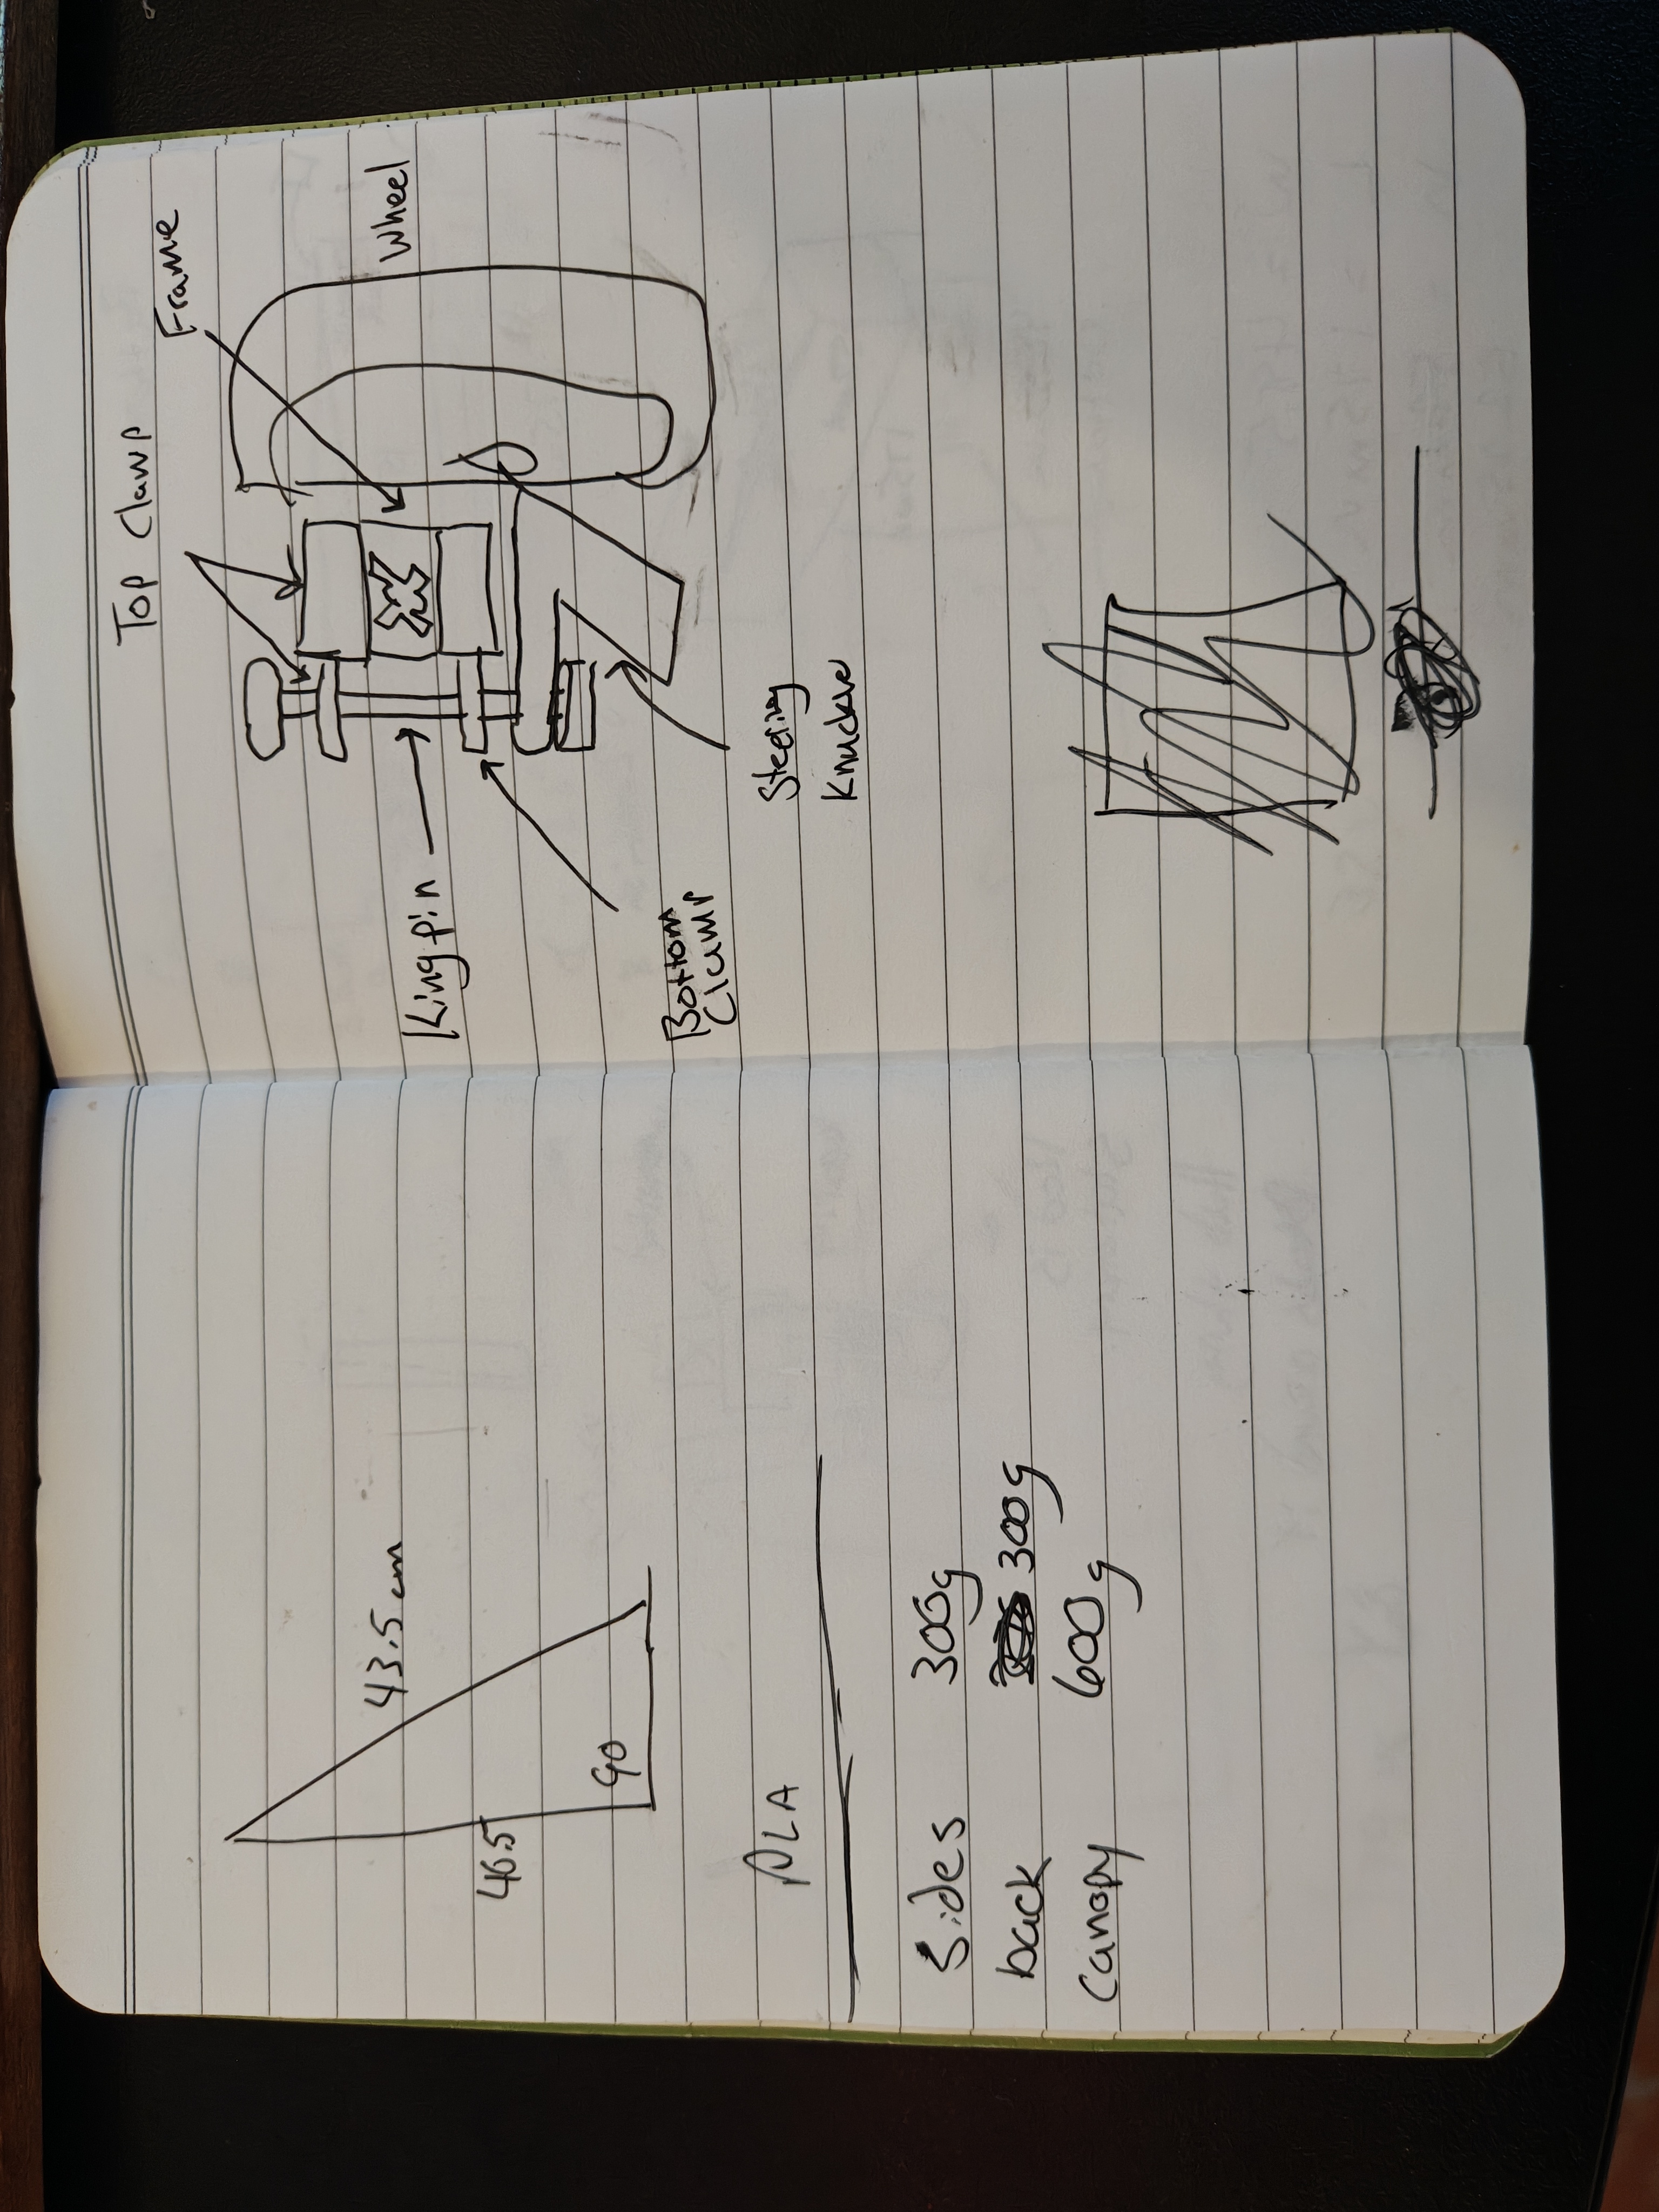 43.5 cm
46.5
90
PLA
Sides 300g
back 300g
Canopy 600g
Top Clamp
Frame
Wheel
King pin
Bottom
Clamp
Steering
Knuckle